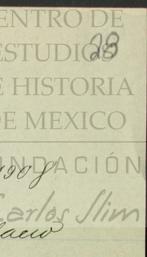 ENTRO DE
ESTUDIOS
E HISTORIA
DE MEXICO
23
UNDACIÓN
1908
Carlos Slim